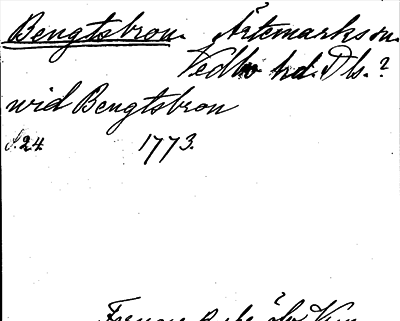 Bengtsbron. Ärtemarks sn.
Vedbo hd. Dls.?
wid Bengtsbron
s. 24 1773.